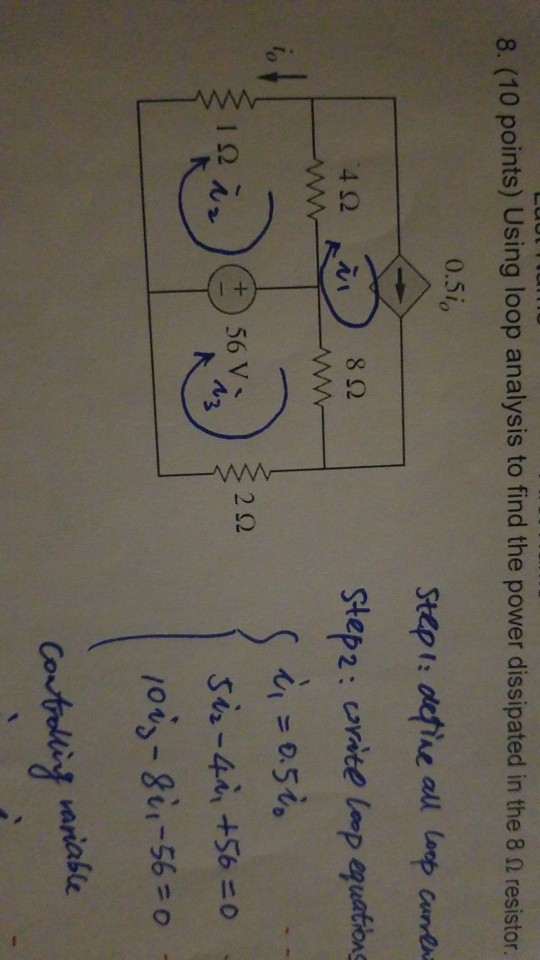 8. (10 points) Using loop analysis to find the power dissipated in the 8 Ω resistor.
0.5i₀
i₁
4 Ω
8 Ω
i₀
1 Ω
i₂
+
−
56 V
i₃
2 Ω
Step1: define all loop
Step2: write loop equations
i₁ = 0.5i₀
5i₂ - 4i₁ + 56 = 0
10i₃ - 8i₁ - 56 = 0
Controlling variable